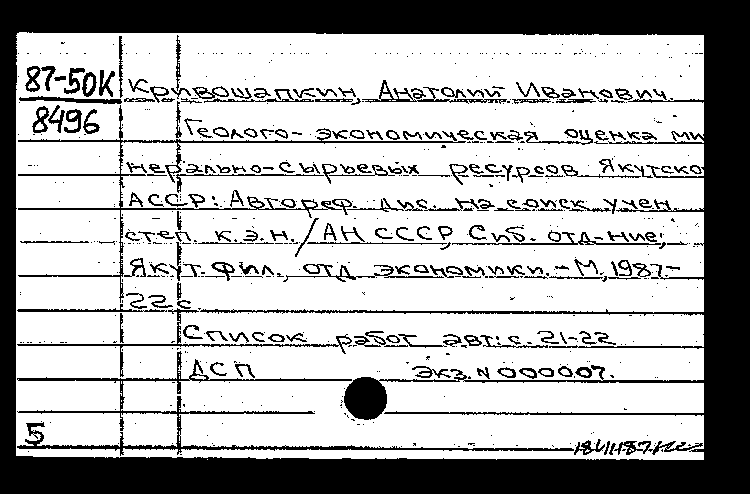 87-50К Кривошапкин, Анатолий Иванович.
8496 Геолого-экономическая оценка ми
нерально-сырьевых ресурсов Якутско
АССР: Автореф. дис. на соиск учен.
степ. к.э.н. / АН СССР, Сиб. отд-ние;
Якут. фил., отд. экономики. - М, 1987-
22 с
Список работ авт.: с. 21-22
ДСП Экз. N 000007.
5